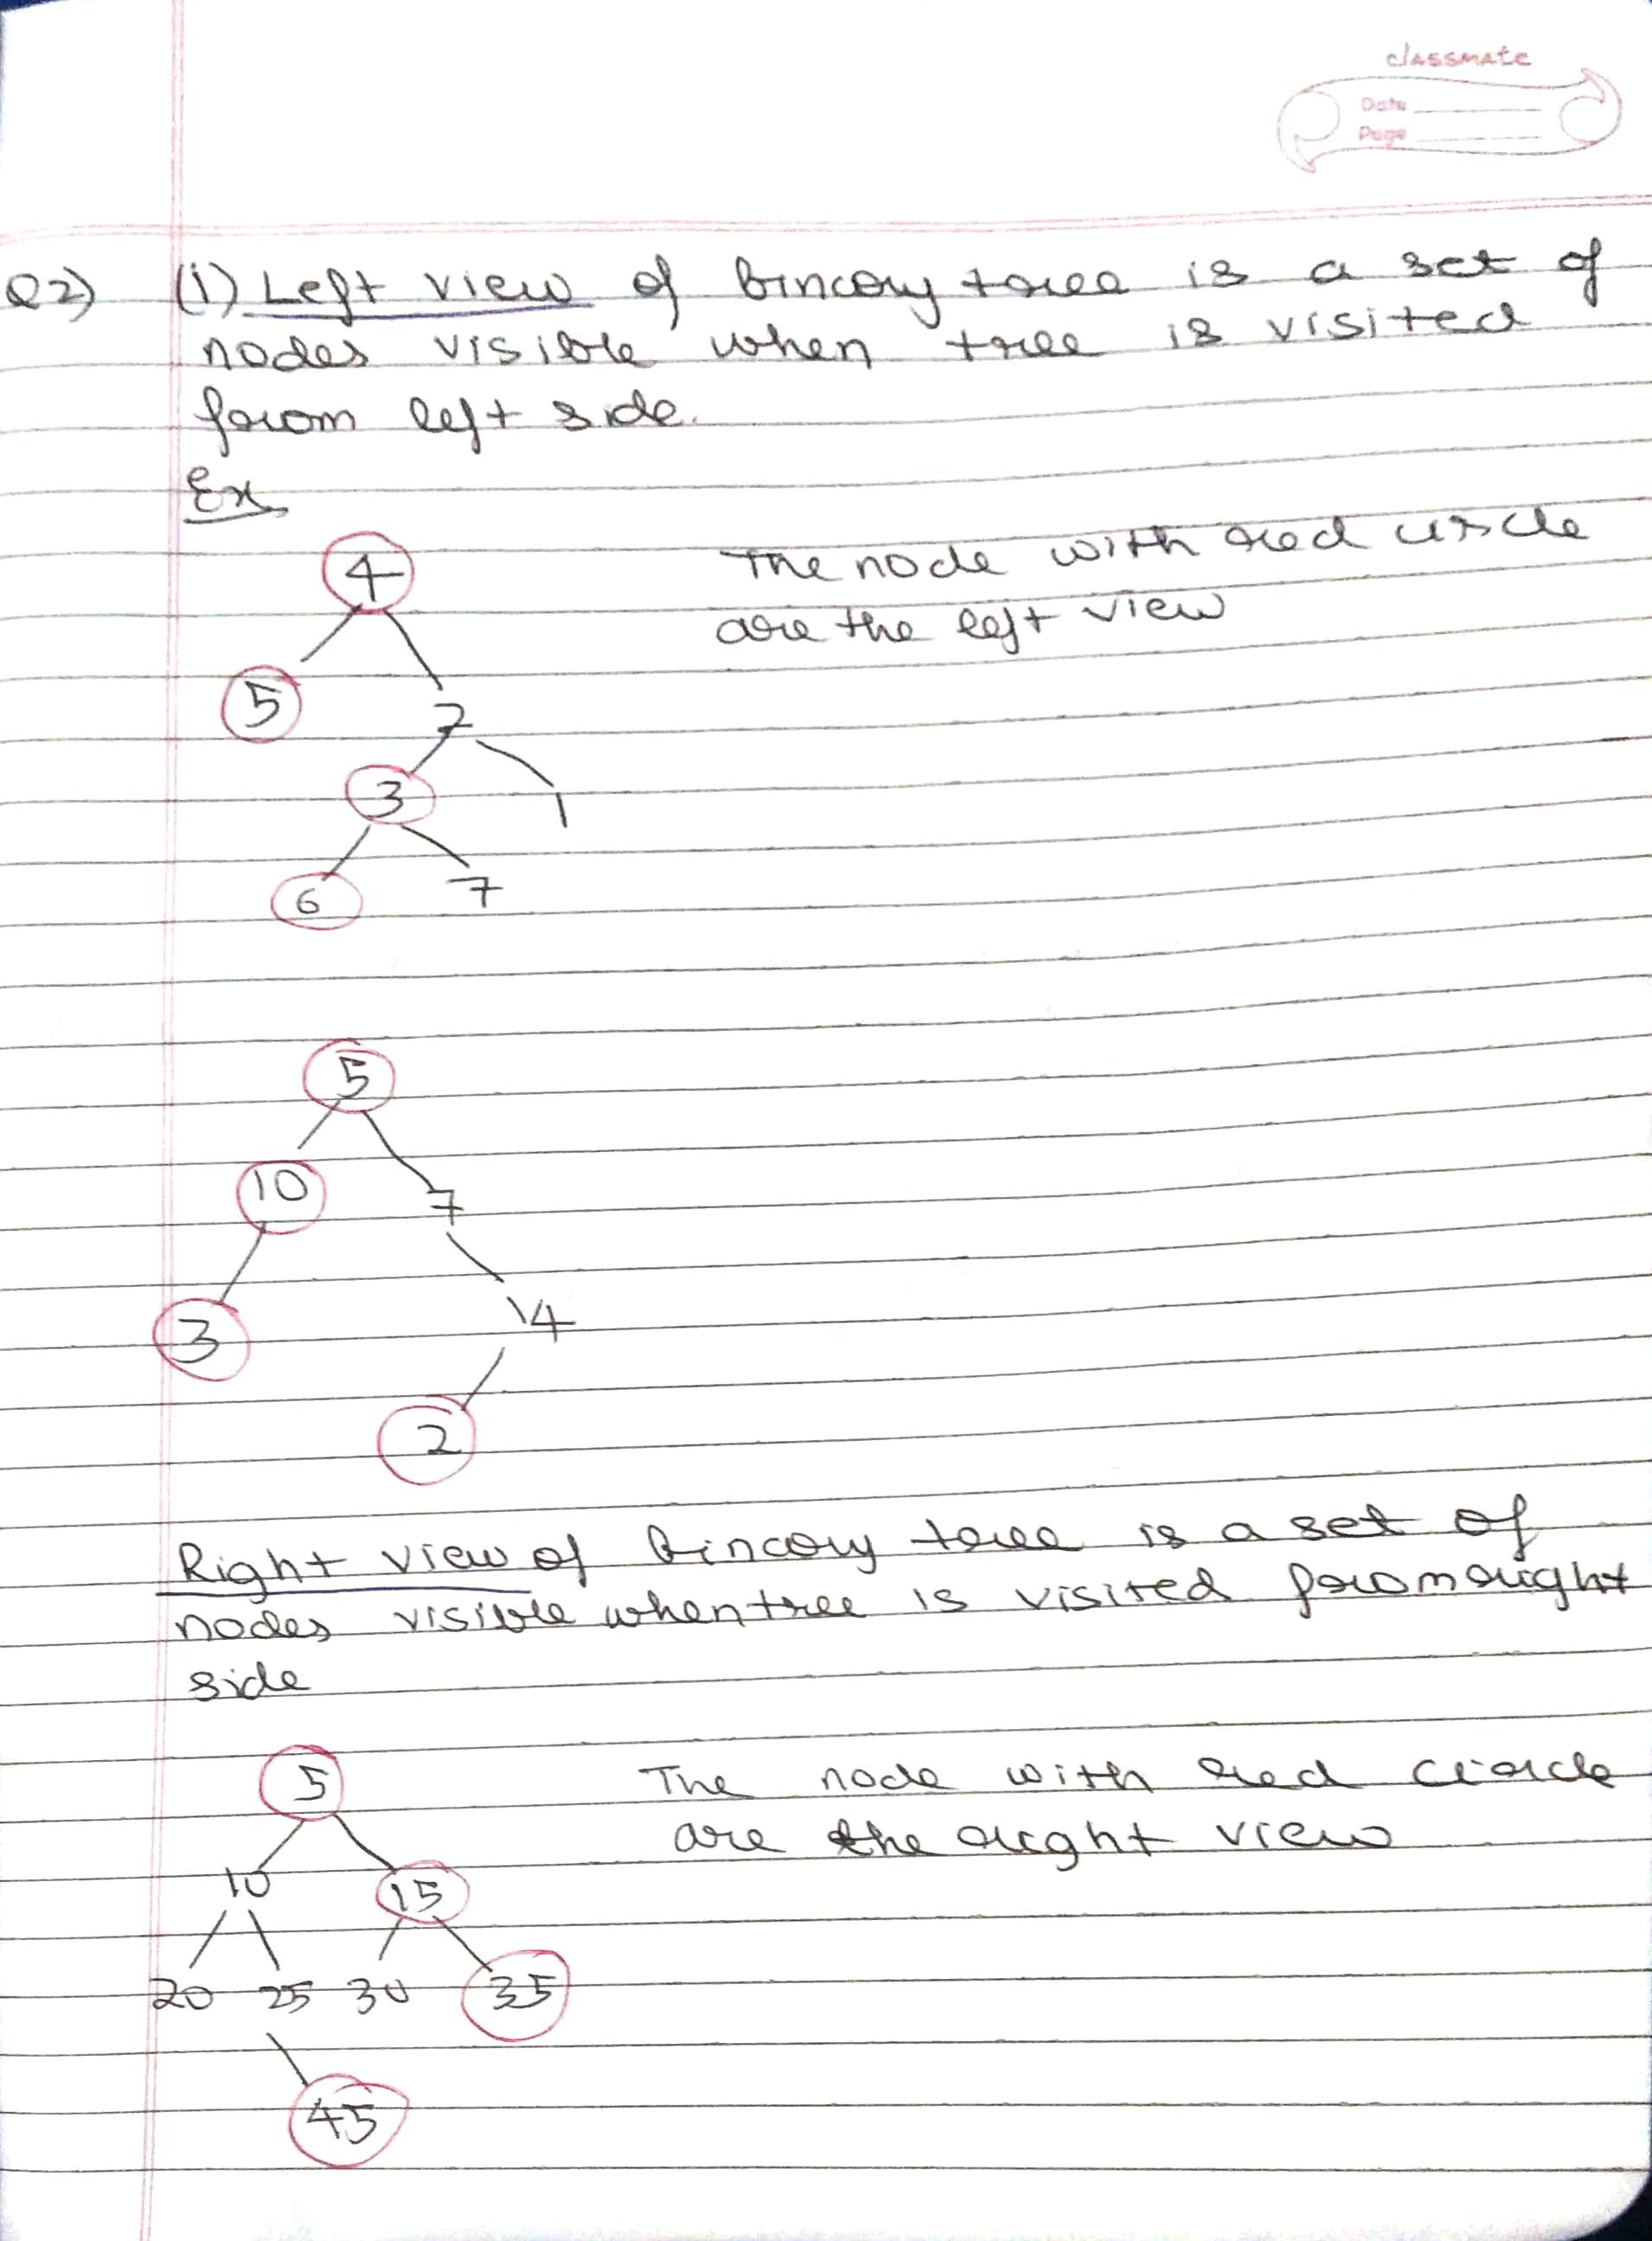 classmate
Date
Page
Q2) (i) Left view of binary tree is a set of
nodes visible when tree is visited
from left side.
Ex
4
The node with red circle
are the left view
5 2
3 1
6 7
5
10 7
3 14
2
Right view of binary tree is a set of
nodes visible when tree is visited from right
side
5
The node with red circle
are the right view
10 15
20 25 30 35
45